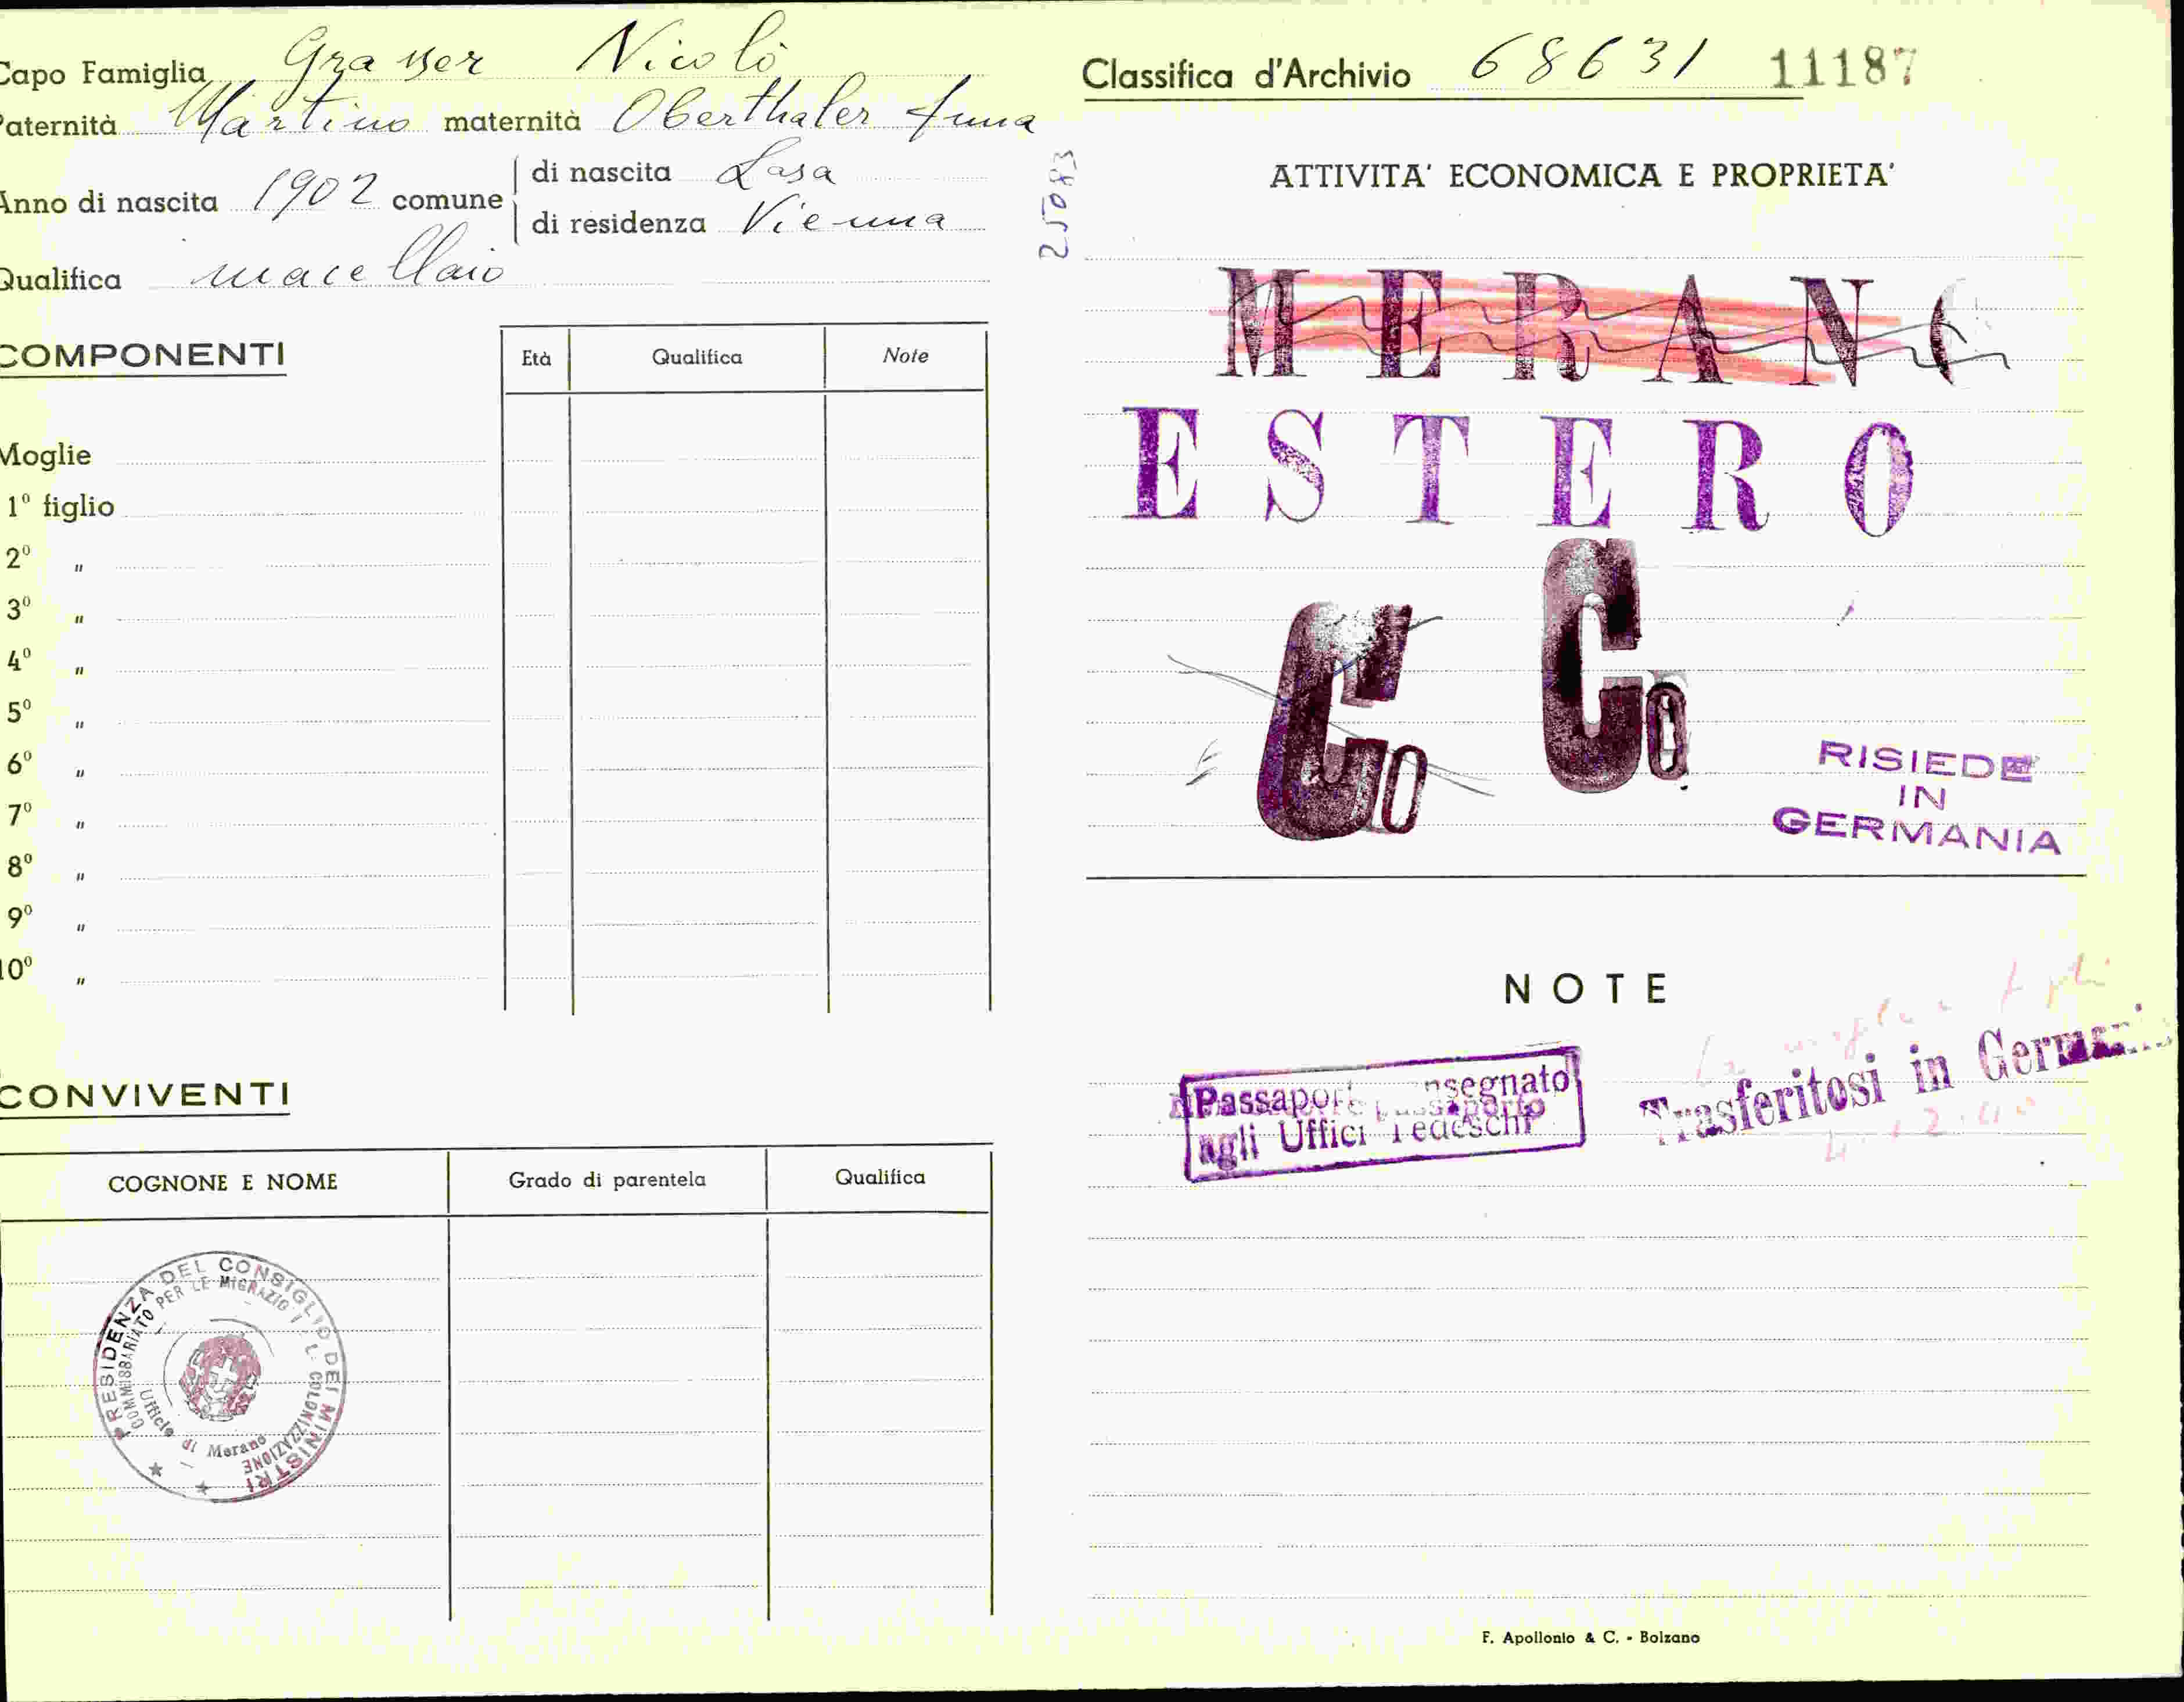 Capo Famiglia Grasser Nicolò
Paternità Martino maternità Oberthaler Anna
Anno di nascita 1902 comune di nascita Lasa
di residenza Vienna
Qualifica macellaio
COMPONENTI Età Qualifica Note
Moglie
1º figlio
2º "
3º "
4º "
5º "
6º "
7º "
8º "
9º "
10º "
CONVIVENTI
COGNONE E NOME Grado di parentela Qualifica
PRESIDENZA DEL CONSIGLIO DEI MINISTRI
COMMISSARIATO PER LE MIGRAZIONI E L COLONIZZAZIONE
Ufficio di Merano
25083
Classifica d'Archivio 68631 11187
ATTIVITA' ECONOMICA E PROPRIETA'
MERANO
ESTERO
Co Co
RISIEDE
IN
GERMANIA
NOTE
Passaporto consegnato
agli Uffici Tedeschi
Trasferitosi in Germania
F. Apollonio & C. - Bolzano